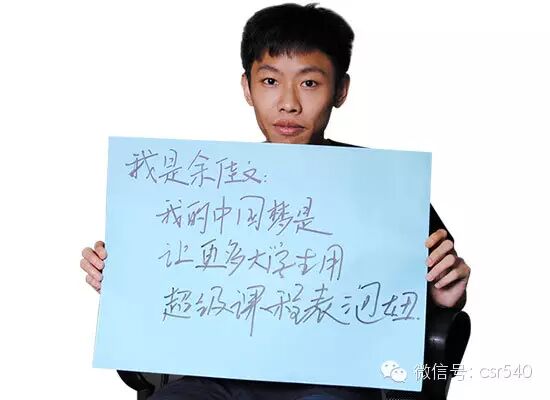 我是余佳文:
我的中国梦是
让更多大学生用
超级课程表泡妞.
微信号: csr540